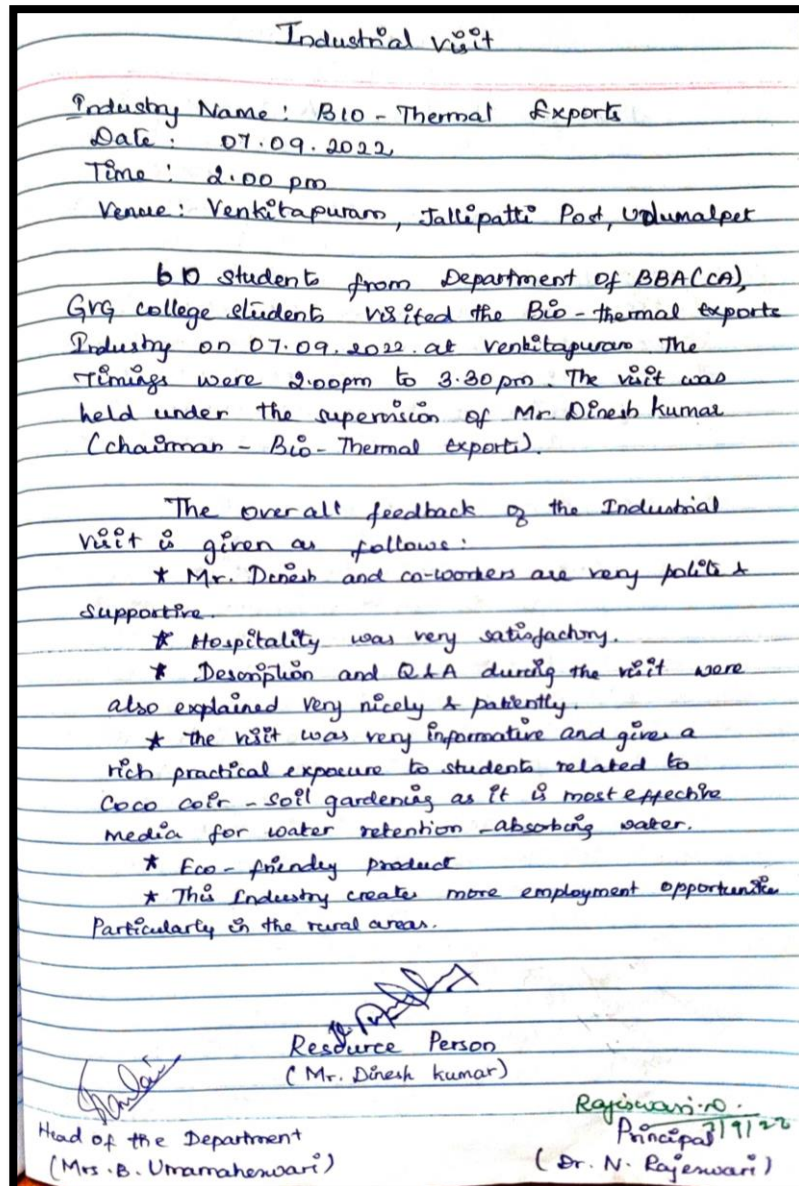 Industrial visit
Industry Name: BIO - Thermal Exports
Date: 07.09.2022
Time: 2.00 pm
Venue: Venkitapuram, Jallipatti Post, Udumalpet
60 students from Department of BBA(CA),
GVG college students visited the Bio - thermal exports
Industry on 07.09.2022. at Venkitapuram. The
Timings were 2.00pm to 3.30 pm. The visit was
held under the supervision of Mr. Dinesh kumar
(chairman - Bio - Thermal exports).
The over all feedback of the Industrial
visit is given as follows:
* Mr. Dinesh and co-workers are very polite &
supportive.
* Hospitality was very satisfactory.
* Description and Q&A during the visit were
also explained very nicely & patiently.
* the visit was very informative and gives a
rich practical exposure to students related to
Coco coir - soil gardening as it is most effective
media for water retention - absorbing water.
* Eco - friendly product
* This Industry creates more employment opportunities
Particularly in the rural areas.
Resource Person
(Mr. Dinesh kumar)
Rajeswari.N.
7/9/22
Head of the Department
Principal
(Mrs. B. Umamaheswari)
(Dr. N. Rajeswari)